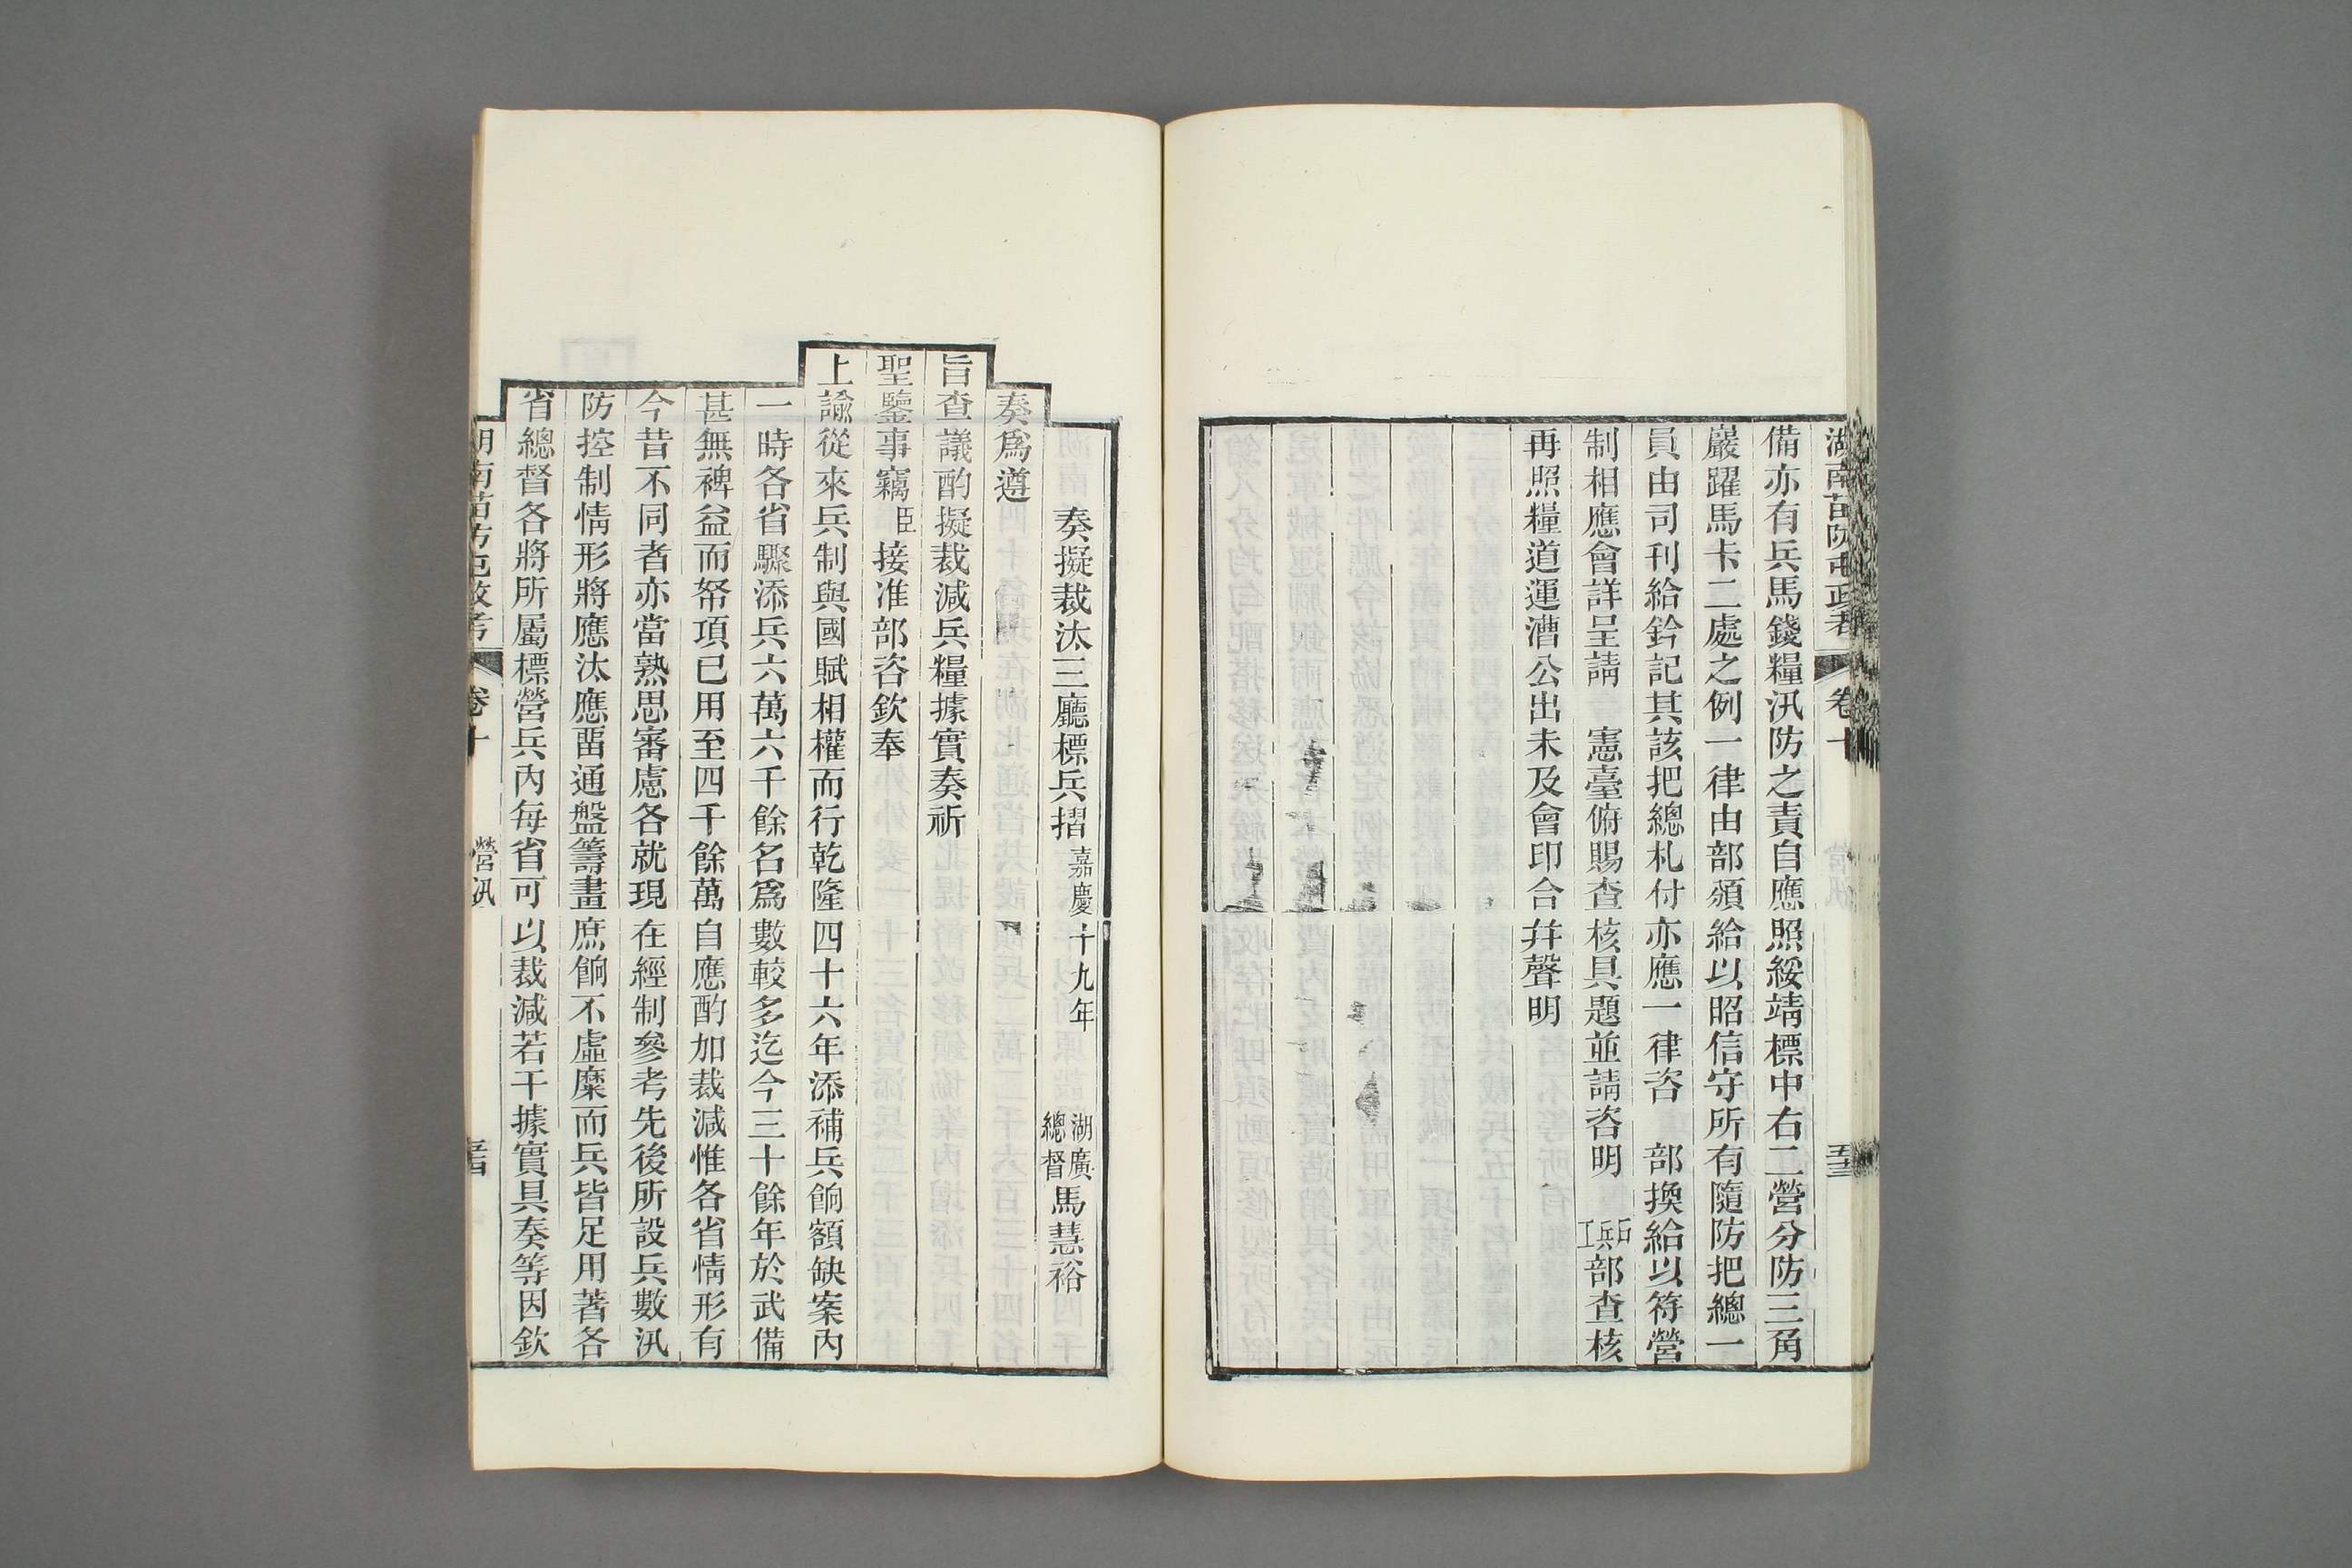 湖南苗防屯政考 卷十 五三
備亦有兵馬錢糧汛防之責自應照綏靖標中右二營分防三角
巖躍馬卡二處之例一律由部頒給以昭信守所有隨防把總一
員由司刊給鈐記其該把總札付亦應一律咨 部換給以符營
制相應會詳呈請 憲臺俯賜查核具題並請咨明 戶兵工部查核
再照糧道運漕公出未及會印合并聲明
奏擬裁汰三廳標兵摺 嘉慶十九年 湖廣總督馬慧裕
奏為遵
旨查議酌擬裁減兵糧據實奏祈
聖鑒事竊臣接准部咨欽奉
上諭從來兵制與國賦相權而行乾隆四十六年添補兵餉額缺案內
一時各省驟添兵六萬六千餘名為數較多迄今三十餘年於武備
甚無裨益而帑項已用至四千餘萬自應酌加裁減惟各省情形有
今昔不同者亦當熟思審慮各就現在經制參考先後所設兵數汛
防控制情形將應汰應畱通盤籌畫庶餉不虛糜而兵皆足用著各
省總督各將所屬標營兵內每省可以裁減若干據實具奏等因欽
湖南苗防屯政考 卷十 營汛